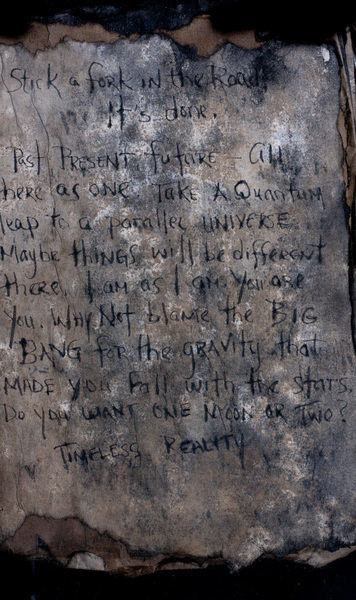 Stick a fork in the Road,
It's done.
Past PRESENT future - all
here as one. Take A Quantum
leap to a parallel UNIVERSE.
Maybe things will be different
there. I am as I am. You are
You. Why Not blame the BIG
BANG for the gRAVITY that
MADE you fall with the stars.
Do you WANT ONE MOON OR TWO?
TIMELESS REALITY